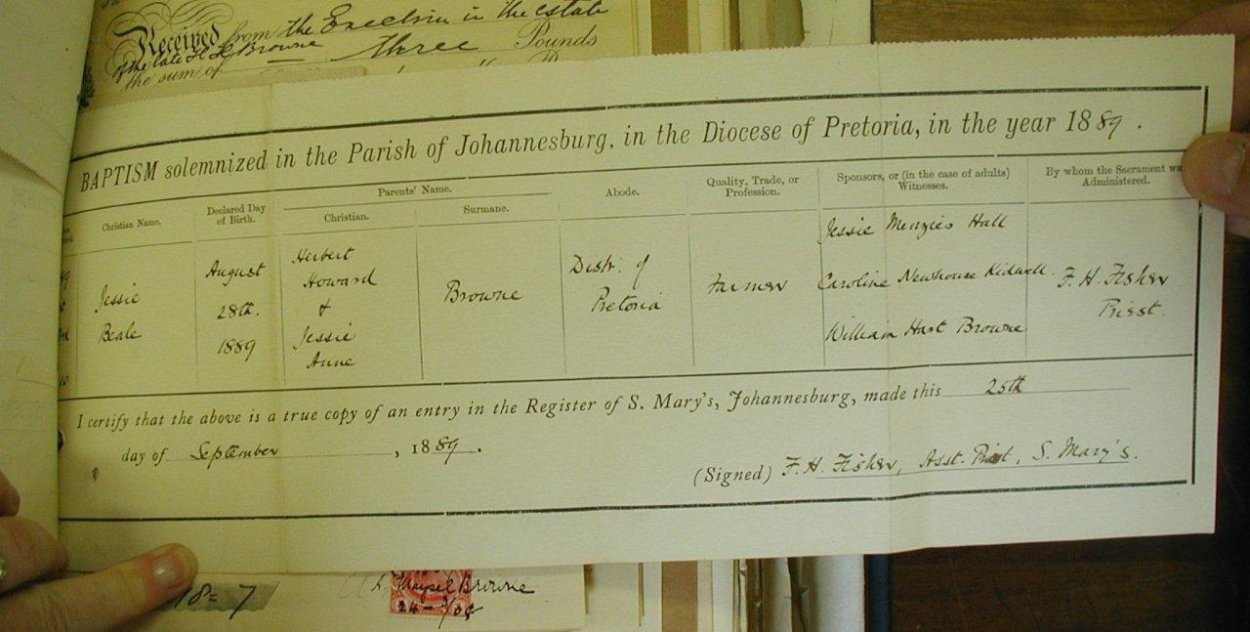 Received from the Executrix in the estate
of the late H H Browne
the sum of three Pounds
BAPTISM solemnized in the Parish of Johannesburg, in the Diocese of Pretoria, in the year 1889.
Christian Name.
Declared Day
of Birth.
Parents' Name.
Christian.
Surname.
Abode.
Quality, Trade, or
Profession.
Sponsors, or (in the case of adults)
Witnesses.
By whom the Sacrament was
Administered.
Jessie
Beale
August
28th.
1889
Herbert
Howard
&
Jessie
Anne
Browne
Distr. of
Pretoria
Farmer
Jessie Menzies Hall
Caroline Newhouse Kidwell
William Hart Browne
F. H. Fisher
Priest.
I certify that the above is a true copy of an entry in the Register of S. Mary's, Johannesburg, made this 25th
day of September, 1889.
(Signed) F. H. Fisher, Asst. Priest, S. Mary's.
Browne